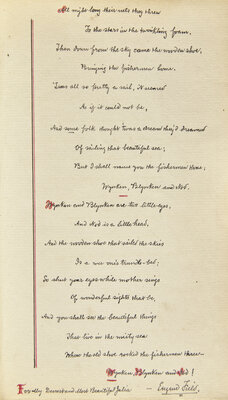 All night long their nets they threw
To the stars in the twinkling foam,
Then down from the sky came the wooden shoe,
Bringing the fishermen home.
'Twas all so pretty a sail, it seemed
As if it could not be,
And some folk thought 'twas a dream they'd dreamed
Of sailing that beautiful sea;
But I shall name you the fishermen three:
Wynken, Blynken and Nod.
Wynken and Blynken are two little eyes,
And Nod is a little head,
And the wooden shoe that sailed the skies
Is a wee one's trundle-bed;
So shut your eyes while mother sings
Of wonderful sights that be,
And you shall see the beautiful things
That live in the misty sea
Where the old shoe rocked the fishermen three—
Wynken, Blynken and Nod!
For my Dearest and Most Beautiful Julia
— Eugene Field.